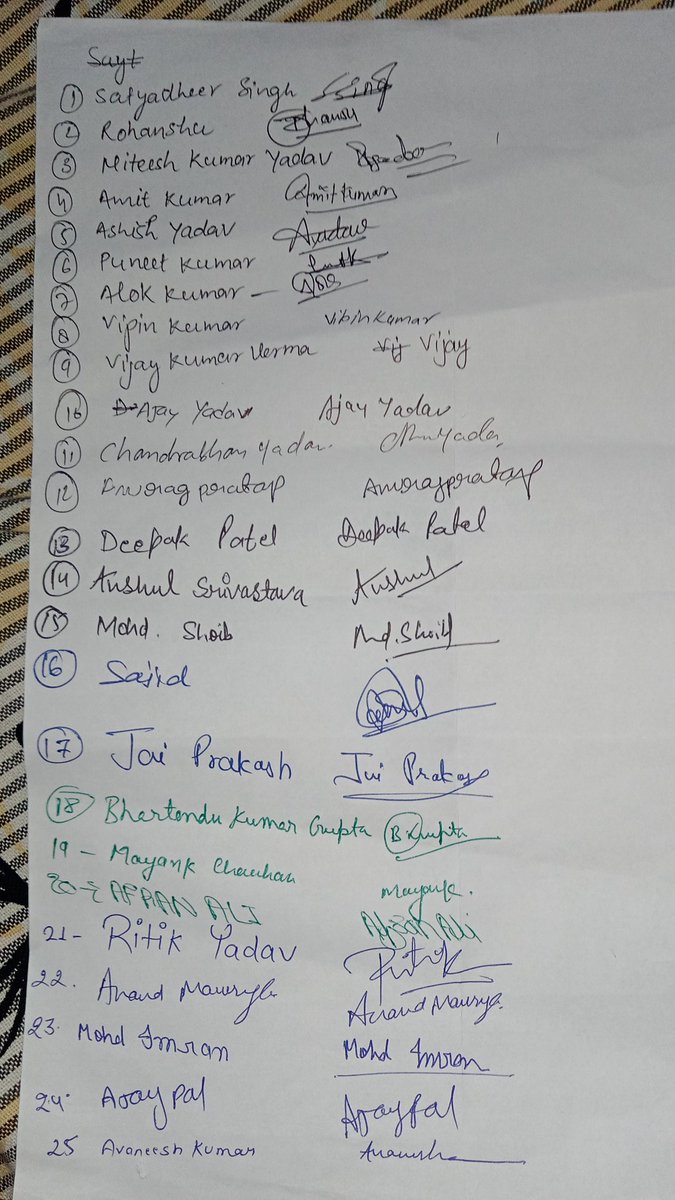 Sayt
① Satyadheer Singh Ssing
② Rohanshu
③ Miteesh Kumar Yadav
④ Amit Kumar Amit Kumar
⑤ Ashish Yadav Ayadav
⑥ Puneet Kumar
⑦ Alok Kumar –
⑧ Vipin Kumar Vibin Kumar
⑨ Vijay Kumar Verma Vij Vijay
⑩ Ajay Yadav Ajay Yadav
⑪ Chandrabhan Yadav.
⑫ Anurag poratap Anuragporatap
⑬ Deepak Patel Deepak Patel
⑭ Anshul Srivastava Anshul
⑮ Mohd. Shoib Md. Shoib
⑯ Sajid
⑰ Jai Prakash Jai Prakas
⑱ Bhartendu Kumar Gupta B.K Gupta
19 – Mayank Chauhan Mayank.
20 – AFAAN ALI
21 – Ritik Yadav Ritik
22. Anand Maurya Anand Maurya
23. Mohd Imran Mohd Imran
24. Ajay Pal Ajaypal
25 Avaneesh Kumar